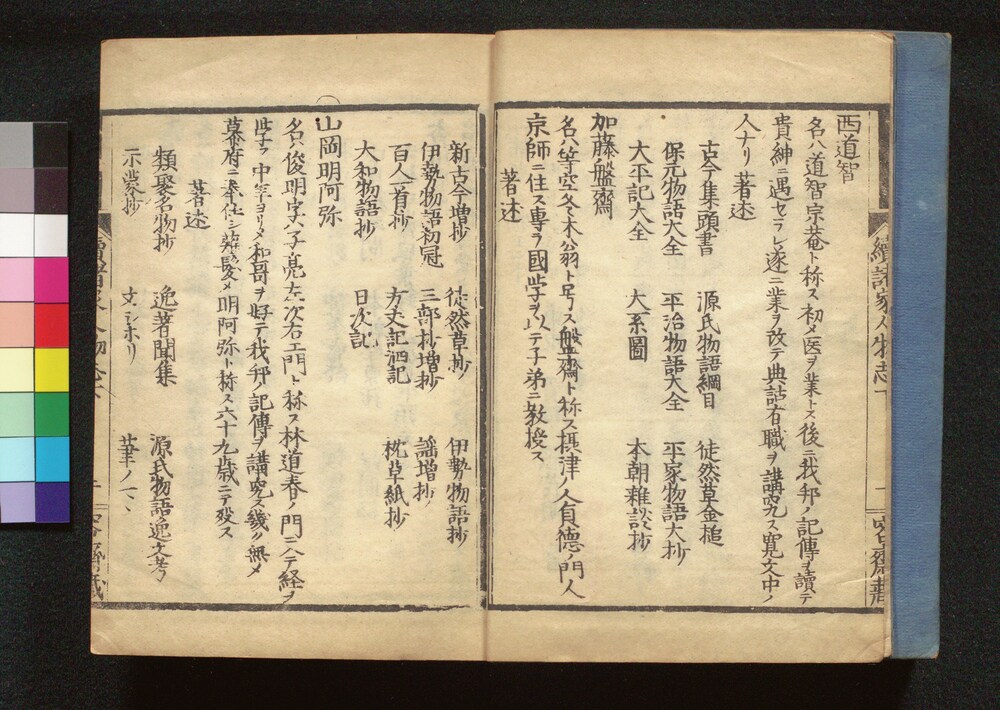 西道智
名ハ道智宗菴ト称ス初メ医ヲ業トス後ニ我邦ノ記傳ヲ讀テ
貴紳ニ遇セラレ遂ニ業ヲ改テ典詁有職ヲ講究ス寛文中ノ
人ナリ 著述
古今集頭書 源氏物語綱目 徒然草金槌
保元物語大全 平治物語大全 平家物語大抄
太平記大全 大系圖 本朝雜談抄
加藤盤齋
名ハ等空冬木翁ト号ス盤齋ト称ス摂津ノ人貞德ノ門人
京師ニ住ス専ラ國学ヲ以テ子弟ニ教授ス
著述
新古今増抄 徒然草抄 伊勢物語抄
伊勢物語初冠 三部抄増抄 謡増抄
百人一首抄 方丈記泗記 枕草紙抄
大和物語抄 日次記
山岡明阿弥
名ハ俊明字ハ子亮左次右エ門ト称ス林道春ノ門ニ入テ経ヲ
学フ中年ヨリ〆和哥ヲ好テ我邦ノ記傳ヲ講究ス幾ク無〆
幕府ニ奉仕シ薙髪〆明阿弥ト称ス六十九歳ニテ歿ス
著述
類聚名物抄 逸著聞集 源氏物語逸文考
示蒙抄 文シホリ 筆ノ
續諸家人物志下